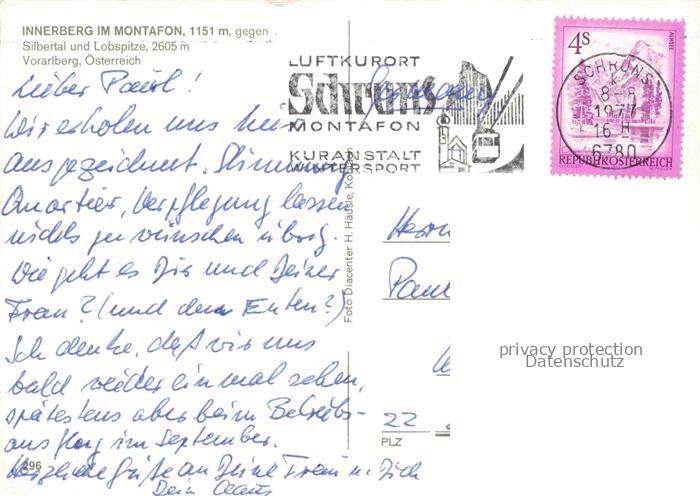 INNERBERG IM MONTAFON, 1151 m, gegen
Silbertal und Lobspitze, 2605 m
Vorarlberg, Österreich
Lieber Paul!
Wir erholen uns hier
ausgezeichnet. Stimmung,
Quartier, Verpflegung lassen
nichts zu wünschen übrig.
Wie geht es Dir und Deiner
Frau? (und den Enten?)
Ich denke, daß wir uns
bald wieder einmal sehen,
spätestens aber beim Betriebs-
ausflug im September.
Herzliche Grüße an Deine Frau u. Dich
Dein Claus
296
Foto Diacenter H. Häusle,
LUFTKURORT
Schruns
MONTAFON
KURANSTALT
WINTERSPORT
Germany
4s
ALMSEE
SCHRUNS
8-8
1977
16
6780
REPUBLIK ÖSTERREICH
Herrn
Paul
22
PLZ
privacy protection
Datenschutz